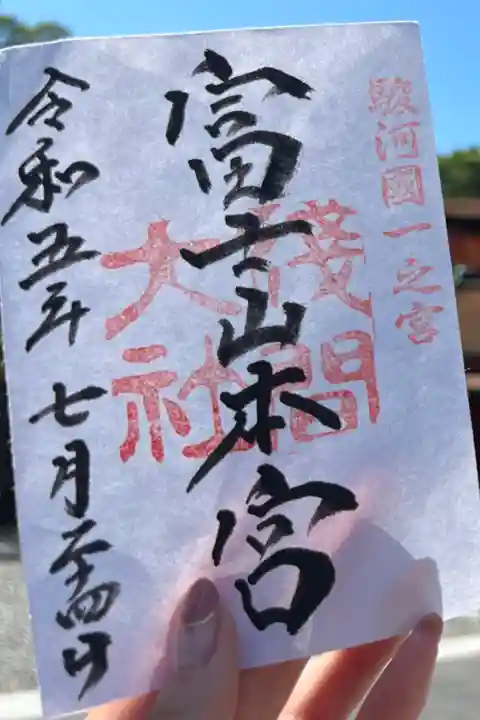 駿河國一之宮
富士山本宮
淺間
大社
令和五年七月二十四日